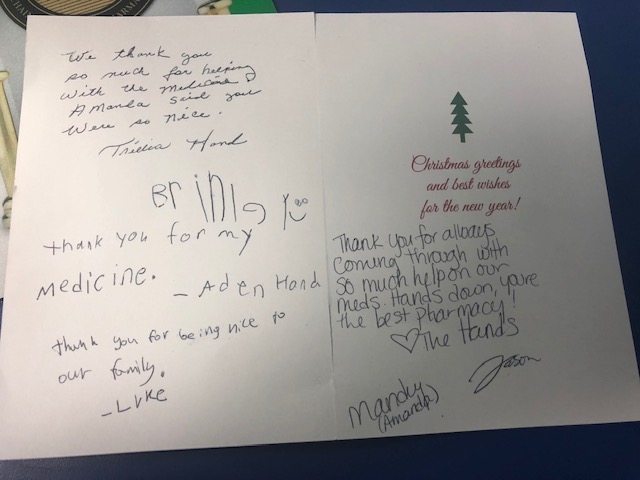 We thank you
so much for helping
with the medicine
Amanda said you
were so nice.
Tricia Hand
Brinlg
thank you for my
medicine.
- Aden Hand
thank you for being nice to
our family.
- Luke
Christmas greetings
and best wishes
for the new year!
Thank you for always
coming through with
so much help on our
meds. Hands down, you're
the best pharmacy!
♡The Hands
Jason
Mandy
(Amanda)